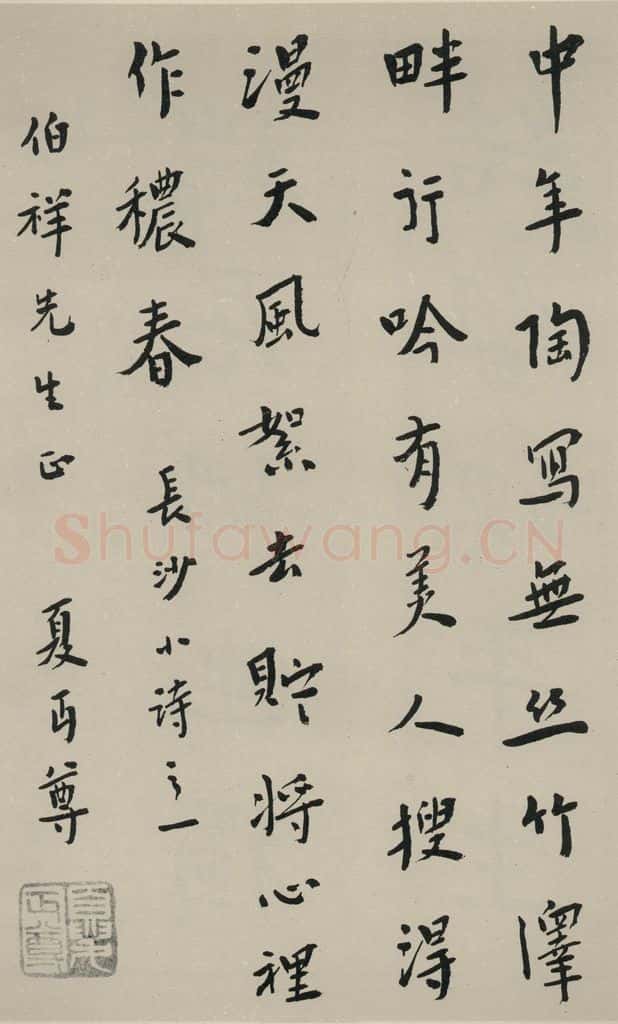 中年陶寫無丝竹澤
畔行吟有美人搜得
漫天風絮去貯將心裡
作穠春
長沙小诗之一
伯祥先生正
夏丏尊
Shufawang.CN